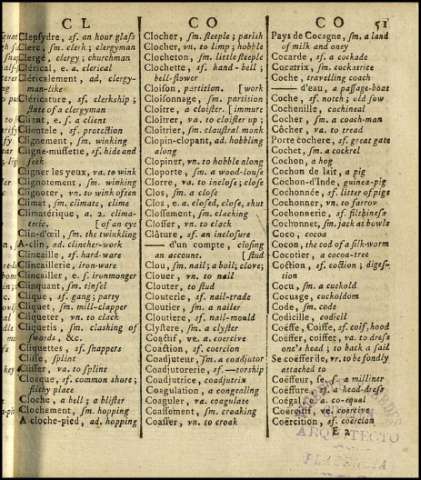 CL
CO
CO 51
Clepsydre, sf. an hour glass
Clerc, sm. clerk; clergyman
Clergé, clergy; churchman
Clérical, e. a. clerical
Cléricalement, ad. clergy-
man-like
Cléricature, sf. clerkship;
state of a clergyman
Client, e. s. a client
Clientele, sf. protection
Clignement, sm. winking
Cligne-mussette, sf. hide and
seek
Cligner les yeux, va. to wink
Clignotement, sm. winking
Clignoter, vn. to wink often
Climat, sm. climate, clime
Climatérique, a. 2. clima-
teric. [of an eye
Clin-d'œil, sm. the twinkling
A-clin, ad. clincher-work
Clincaille, sf. hard-ware
Clincaillerie, iron-ware
Clincailler, e. s. ironmonger
Clinquant, sm. tinsel
Clique, sf. gang; party
Cliquet, sm. mill-clapper
Cliqueter, vn. to clack
Cliquetis, sm. clashing of
swords, &c.
Cliquettes, sf. snappers
Clisse, splint
Clisser, va. to splint
Cloaque, sf. common shore;
filthy place
Cloche, a bell; a blister
Clochement, sm. hopping
A cloche-pied, ad. hopping
Clocher, sm. steeple; parish
Clocher, vn. to limp; hobble
Clocheton, sm. little steeple
Clochette, sf. hand-bell;
bell-flower
Cloison, partition. [work
Cloisonnage, sm. partition
Cloître, a cloister. [immure
Cloîtrer, va. to cloister up;
Cloîtrier, sm. claustral monk
Clopin-clopant, ad. hobbling
along
Clopiner, vn. to hobble along
Cloporte, sm. a wood-louse
Clorre, va. to inclose; close
Clos, sm. a close
Clos, e. a. closed, close, shut
Clossement, sm. clacking
Closser, vn. to clack
Clâture, sf. an inclosure
— d'un compte, closing
an account. [stud
Clou, sm. nail; a boil; clove;
Clouer, vn. to nail
Clouter, to stud
Clouterie, sf. nail-trade
Cloutier, sm. a nailer
Cloutiere, sf. nail-mould
Clystere, sm. a clyster
Coactif, ve. a. coercive
Coaction, sf. coercion
Coadjuteur, sm. a coadjutor
Coadjutorerie, sf. —torship
Coadjutrice, coadjutrix
Coagulation, a congealing
Coaguler, va. coagulate
Coassement, sm. croaking
Coasser, vn. to croak
Pays de Cocagne, sm. a land
of milk and oney
Cocarde, sf. a cockade
Cocatrix, sm. cockatrice
Coche, travelling coach
— d'eau, a passage-boat
Coche, sf. notch; old sow
Cochenille, cochineal
Cocher, sm. a coach-man
Côcher, va. to tread
Porte cochere, sf. great gate
Cochet, sm. a cockrel
Cochon, a hog
Cochon de lait, a pig
Cochon-d'Inde, guinea-pig
Cochonnée, sf. litter of pigs
Cochonner, vn. to farrow
Cochonnerie, sf. filthiness
Cochonnet, sm. jack at bowls
Coco, cocoa
Cocon, the cod of a silk-worm
Cocotier, a cocoa-tree
Coction, sf. coction; diges-
tion
Cocu, sm. a cuckold
Cocuage, cuckoldom
Code, sm. code
Codicille, codicil
Coeffe, Coiffe, sf. coif, hood
Coëffer, coiffer, va. to dress
one's head; to back a sail
Se coëfferde, vr. to be fondly
attached to
Coëffeur, se. s. a milliner
Coëffure, sf. a head-dress
Coégal, e. a. co-equal
Coërcitif, ve. coercive
Coërcition, sf. coercion
E 2